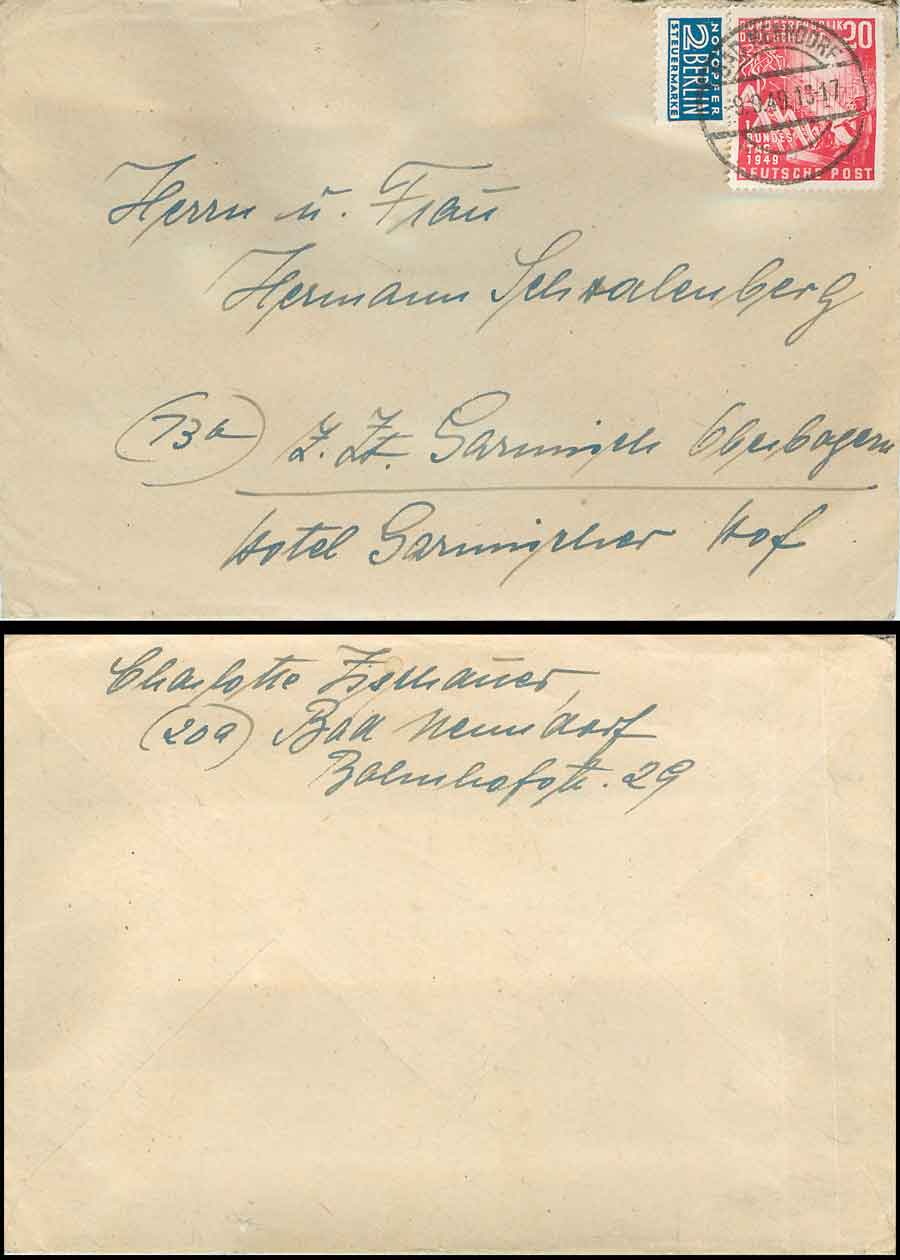 NOTOPFER
2 BERLIN
STEUERMARKE
BUNDESREPUBLIK
DEUTSCHLAND
20
BAD NENNDORF
-9.9.49.16-17
1.
BUNDES
TAG
1949
DEUTSCHE POST
Herrn u. Frau
Hermann Schwalenberg
(13a) z. Zt. Garmisch Oberbayern
Hotel Garmischer Hof
Charlotte
(20a) Bad Nenndorf
Bahnhofstr. 29